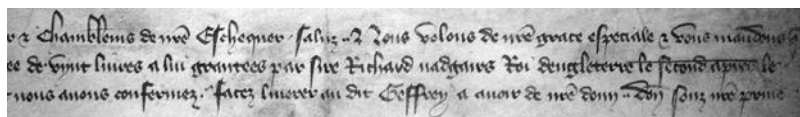 r & Chamblleins de nr̃e Eschequer saluz .. & Nous volons de nr̃e grace especiale & vous mandons
ee de vynt liures a lui grantees par sire Richard nadgairs Roi dengleterre le second apres le
nous auons confermez. facez liuerer au dit Geffrey a auoir de nr̃e donn .. Don souz nr̃e priue